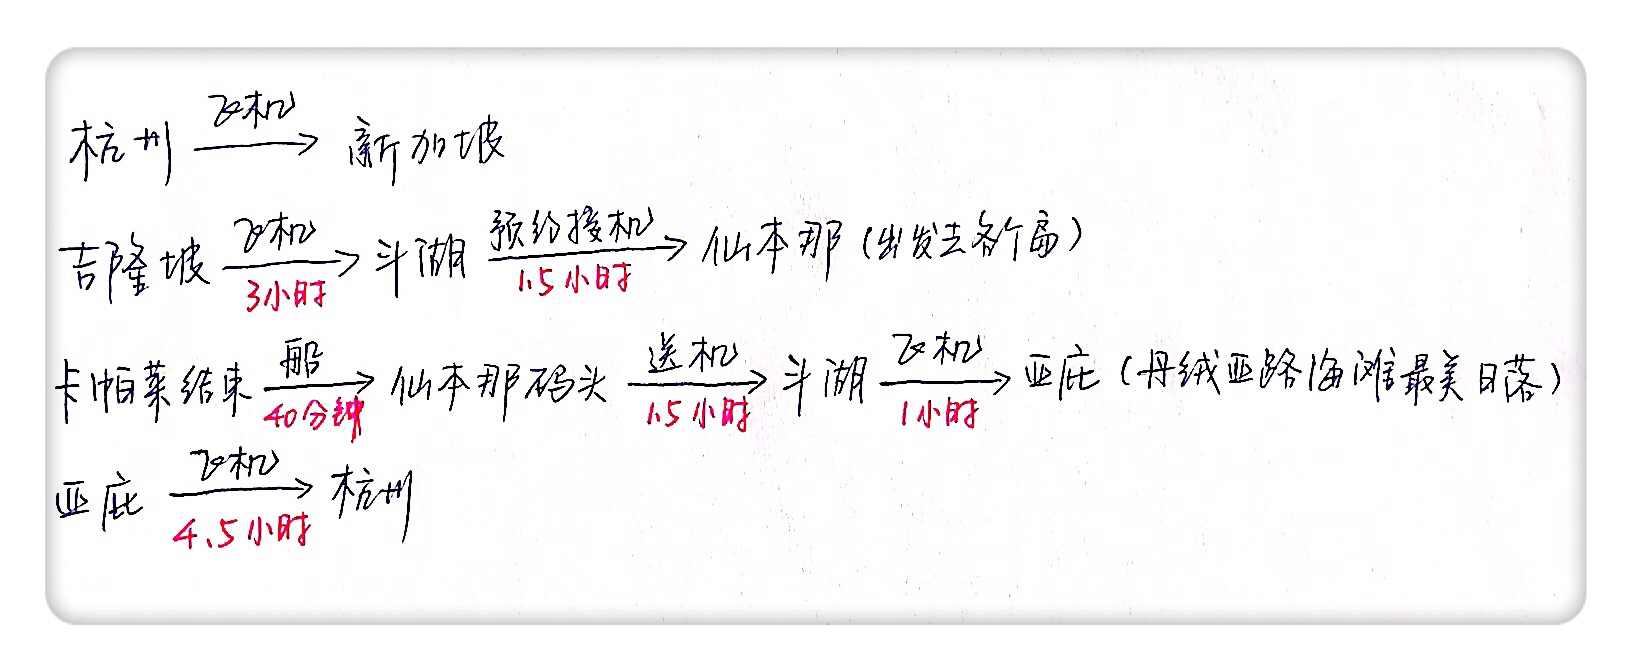 杭州 飞机→ 新加坡
吉隆坡 飞机→ 3小时 斗湖 预约接机→ 1.5小时 仙本那（出发去各个岛）
卡帕莱结束 船→ 40分钟 仙本那码头 送机→ 1.5小时 斗湖 飞机→ 1小时 亚庇（丹绒亚路海滩最美日落）
亚庇 飞机→ 4.5小时 杭州